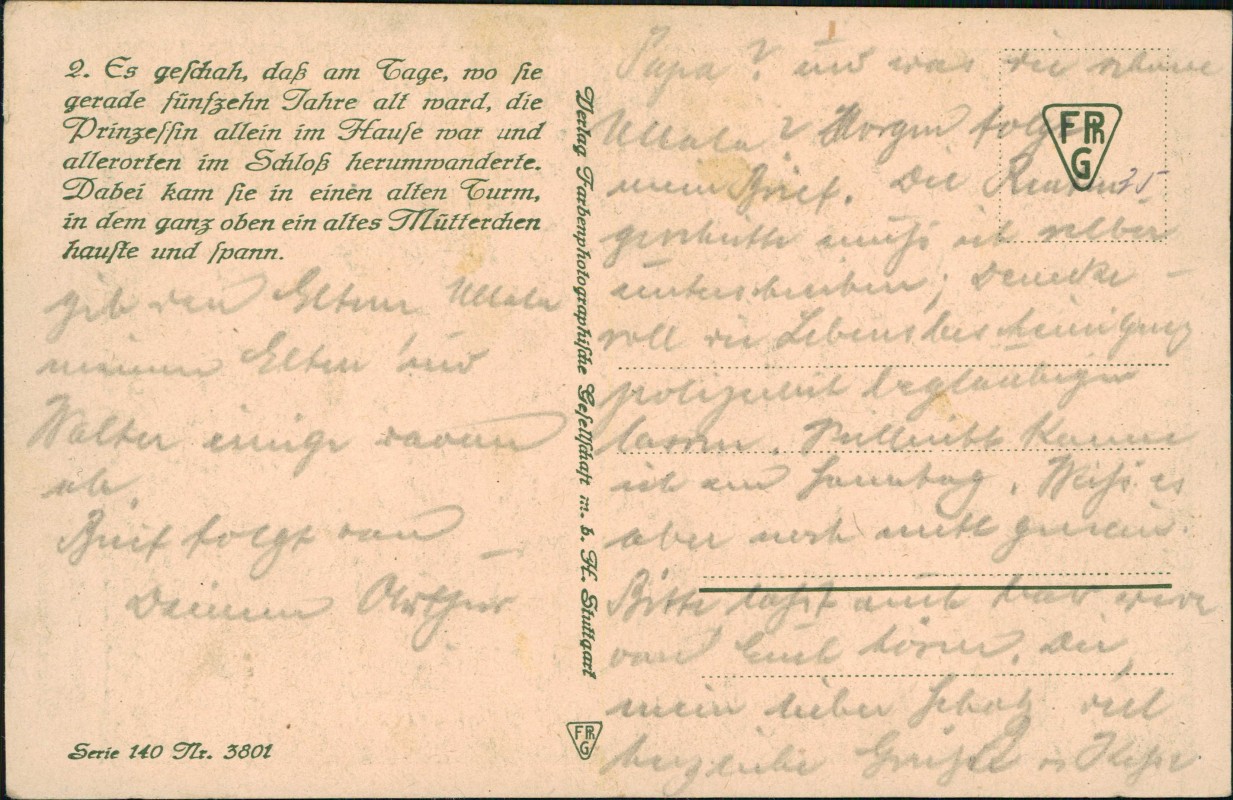 2. Es geschah, daß am Tage, wo sie
gerade fünfzehn Jahre alt ward, die
Prinzessin allein im Hause war und
allerorten im Schloß herumwanderte.
Dabei kam sie in einen alten Turm,
in dem ganz oben ein altes Mütterchen
hauste und spann.
gib den Eltern
meinen Eltern und
Walter einige davon
ab.
Brief folgt von
Deinem Arthur
Serie 140 Nr. 3801
Verlag Farbenphotographische Gesellschaft m. b. H. Stuttgart
FPRG
FPRG
Papa? und was die
? Morgen folgt
mein Brief. Die 35
muss ich selber
unterschreiben;
soll die Lebensbescheinigung
polizeilich beglaubigen
lassen. Vielleicht komme
ich am Sonntag. Weiss es
aber noch nicht genau.
Bitte lasst auch was
von Euch hören. Dir,
mein lieber Schatz viel
herzliche Grüsse u Küsse